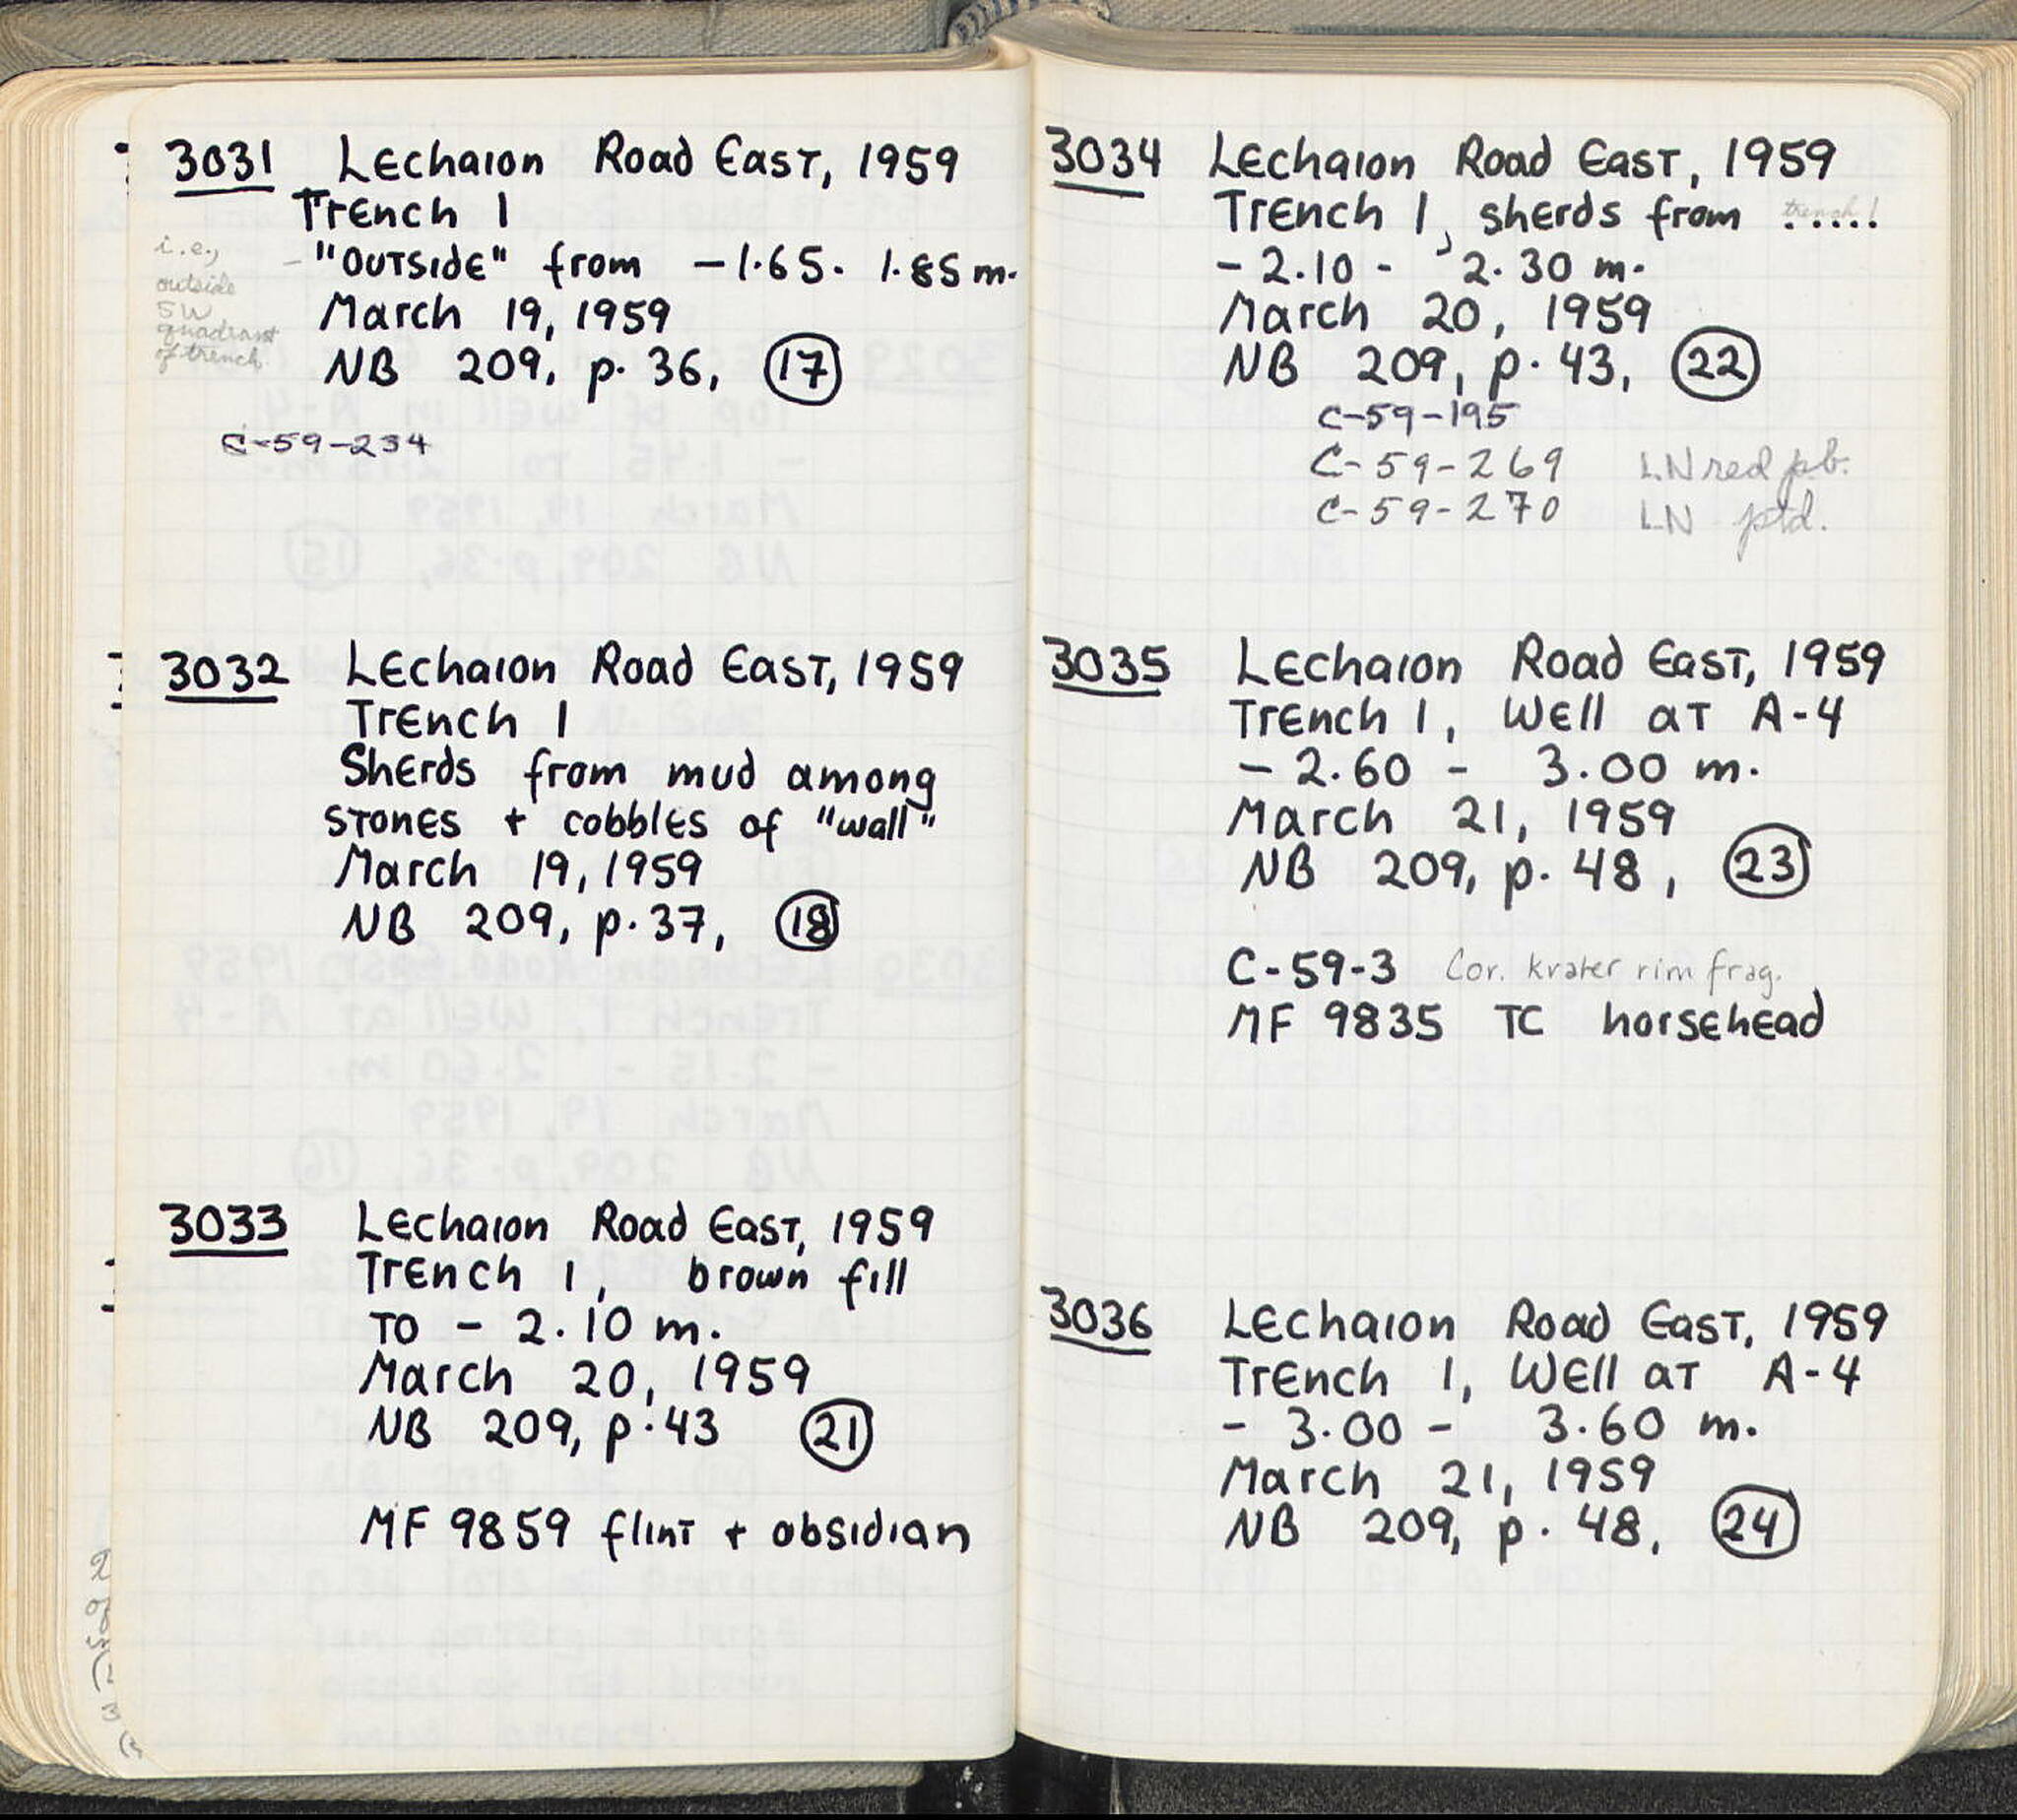 3031 Lechaion Road East, 1959
Trench 1
"Outside" from -1.65 - 1.85 m.
i.e.,
outside
SW
quadrant
of trench.
March 19, 1959
NB 209, p. 36, 17
C-59-234
3032 Lechaion Road East, 1959
Trench 1
Sherds from mud among
stones + cobbles of "wall"
March 19, 1959
NB 209, p. 37, 18
3033 Lechaion Road East, 1959
Trench 1, brown fill
to - 2.10 m.
March 20, 1959
NB 209, p. 43 21
MF 9859 flint + obsidian
3034 Lechaion Road East, 1959
Trench 1, sherds from trench 1 .....
- 2.10 - 2.30 m.
March 20, 1959
NB 209, p. 43, 22
C-59-195
C-59-269 LN red pb.
C-59-270 LN ptd.
3035 Lechaion Road East, 1959
Trench 1, Well at A-4
- 2.60 - 3.00 m.
March 21, 1959
NB 209, p. 48, 23
C-59-3 Cor. krater rim frag.
MF 9835 TC horsehead
3036 Lechaion Road East, 1959
Trench 1, Well at A-4
- 3.00 - 3.60 m.
March 21, 1959
NB 209, p. 48, 24